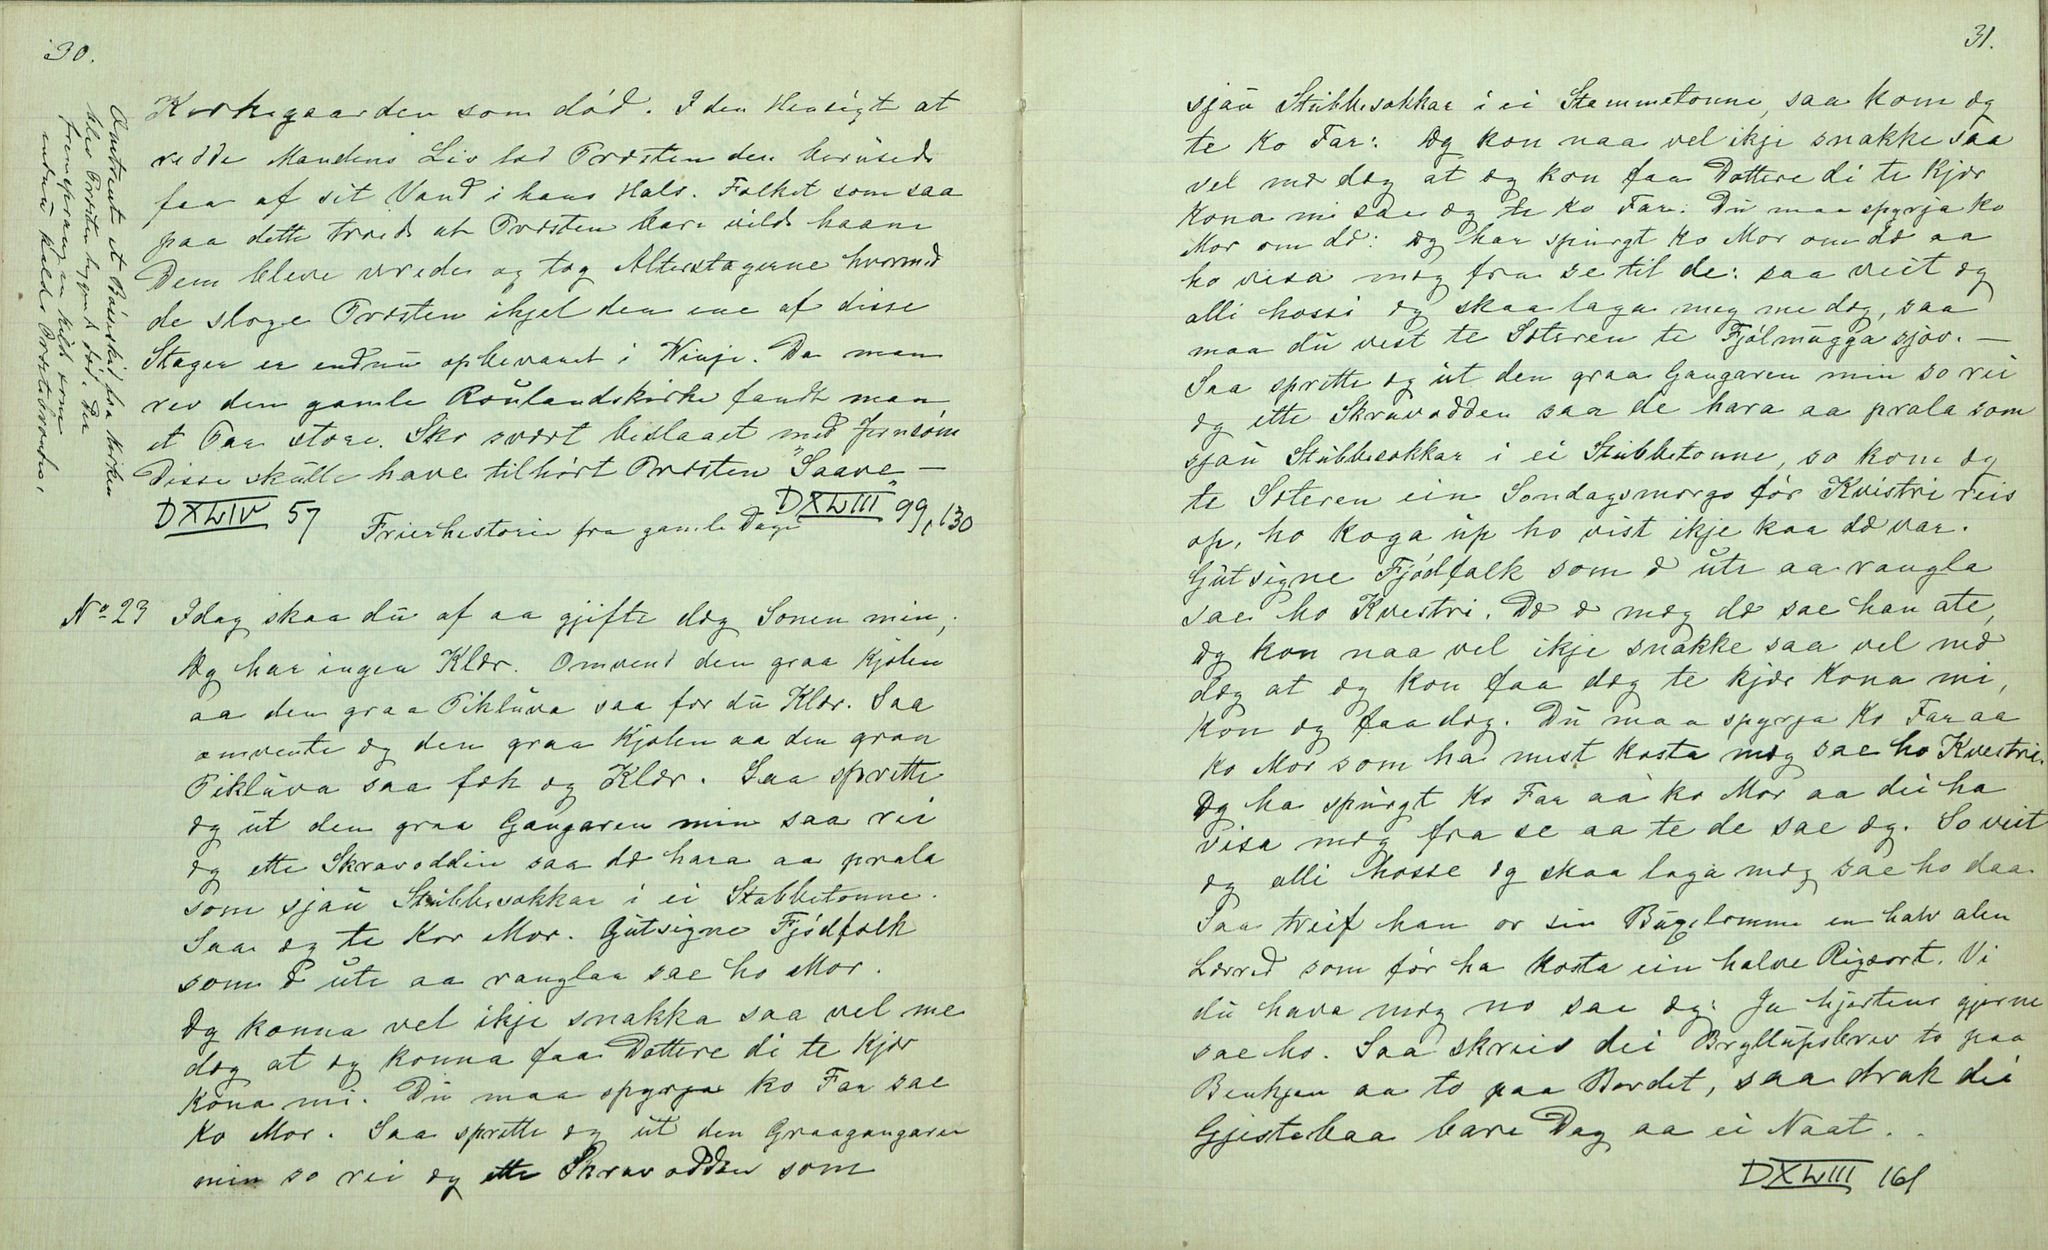 30.
Kirkegaarden som død. I den Hensigt at
redde Mandens Liv lod Præsten den berusede
faa af sit Vand i hans Hals. Folket som saa
paa dette troede at Præsten bare vilde haane
Dem bleve vrede og tog Alterstagerne hvormed
de sloge Præsten ihjel den ene af disse
Stager er endnu opbevaret i Vinje. Da man
rev den gamle Roulandskirke fandt man
et Par store Sko svært beslaaet med Jernsøm
Disse skulle have tilhørt Præsten "Saave" —
DXLIV 57 DXLIII 99, 130
Omtrent et Bøsseskud fra Kirken
blev Præsten
fremsprang en kild som
endnu kaldes
Frierhistorie fra gamle Dage
No 23 Idag skaa du af aa gjifte dæg Sonen min,
Æg har ingen Klær. Omvend den graa Kjolen
aa den graa Pikluva saa fær du Klær. Saa
omvente æg den graa Kjolen aa den graa
Pikluva saa fæk æg Klær. Saa sprette
æg ut den graa Gangaren min saa rei
æg ette Skravoddin saa dæ hara aa prala
som sjau Stubbesokkar i ei Stabbetonne.
Saa æg te Kor Mor. Gutsigne Fjódfolk
som æ ute aa ranglaa sae ho Mor.
Æg konna vel ikje snakka saa vel me
dæg at æg konna faa Dottere di te Kjær
Kona mi. Du maa spyrja ko Far sae
Ko Mor. Saa sprette æg ut den Graagangaren
min so rei æg ette Skravodden som
31.
sjau Stubbesokkar i ei Stammetonne, saa kom æg
te Ko Far: Æg kon naa vel ikje snakke saa
vel mæ dæg at æg kon faa Dottere di te Kjær
Kona mi sae æg te Ko Far: Du maa spyrja Ko
Mor om dæ: Æg har spurgt Ko Mor om dæ aa
ho visa mæg fra se til de: saa veit æg
alli hossi æg skaa laga mæg me dæg, saa
maa du vest te Sæteren te Fjólmugga sjøv. —
Saa sprette æg ut den graa Gangaren min so rei
æg ette Skravodden saa de hara aa prala som
sjau Stubbesokkar i ei Stubbetonne, so kom æg
te Sæteren ein Sondagsmorgo før Kvistri reis
op, ho koga up ho vist ikje kaa dæ var.
Gutsigne Fjódfolk som æ ute aa rangla
sae ho Kvestri. Dæ æ mæg dæ sae han ate,
Æg kon naa vel ikje snakke saa vel mæ
dæg at æg kon faa dæg te kjær Kona mi,
Kon æg faa dæg. Du maa spyrja Ko Far aa
Ko Mor som ha mest kosta mæg sae ho Kvestrie.
Æg ha spurgt Ko Far aa ko Mor aa dei ha
visa mæg fra se aa te de sae æg. So veit
æg alli hosse æg skaa laga mæg sae ho daa.
Saa treif han or sin Buxelomme en halv alen
Lærred som før ha kosta ein halve Rigsort. Vi
du hava mæg no sae æg: Ja hjertens gjerne
sae ho. Saa skreiv dei Bryllupsbrev to paa
Benkjen aa to paa Bordet, saa drak dei
Gjestebaa bare Dag aa ei Naat..
DXLIII 161